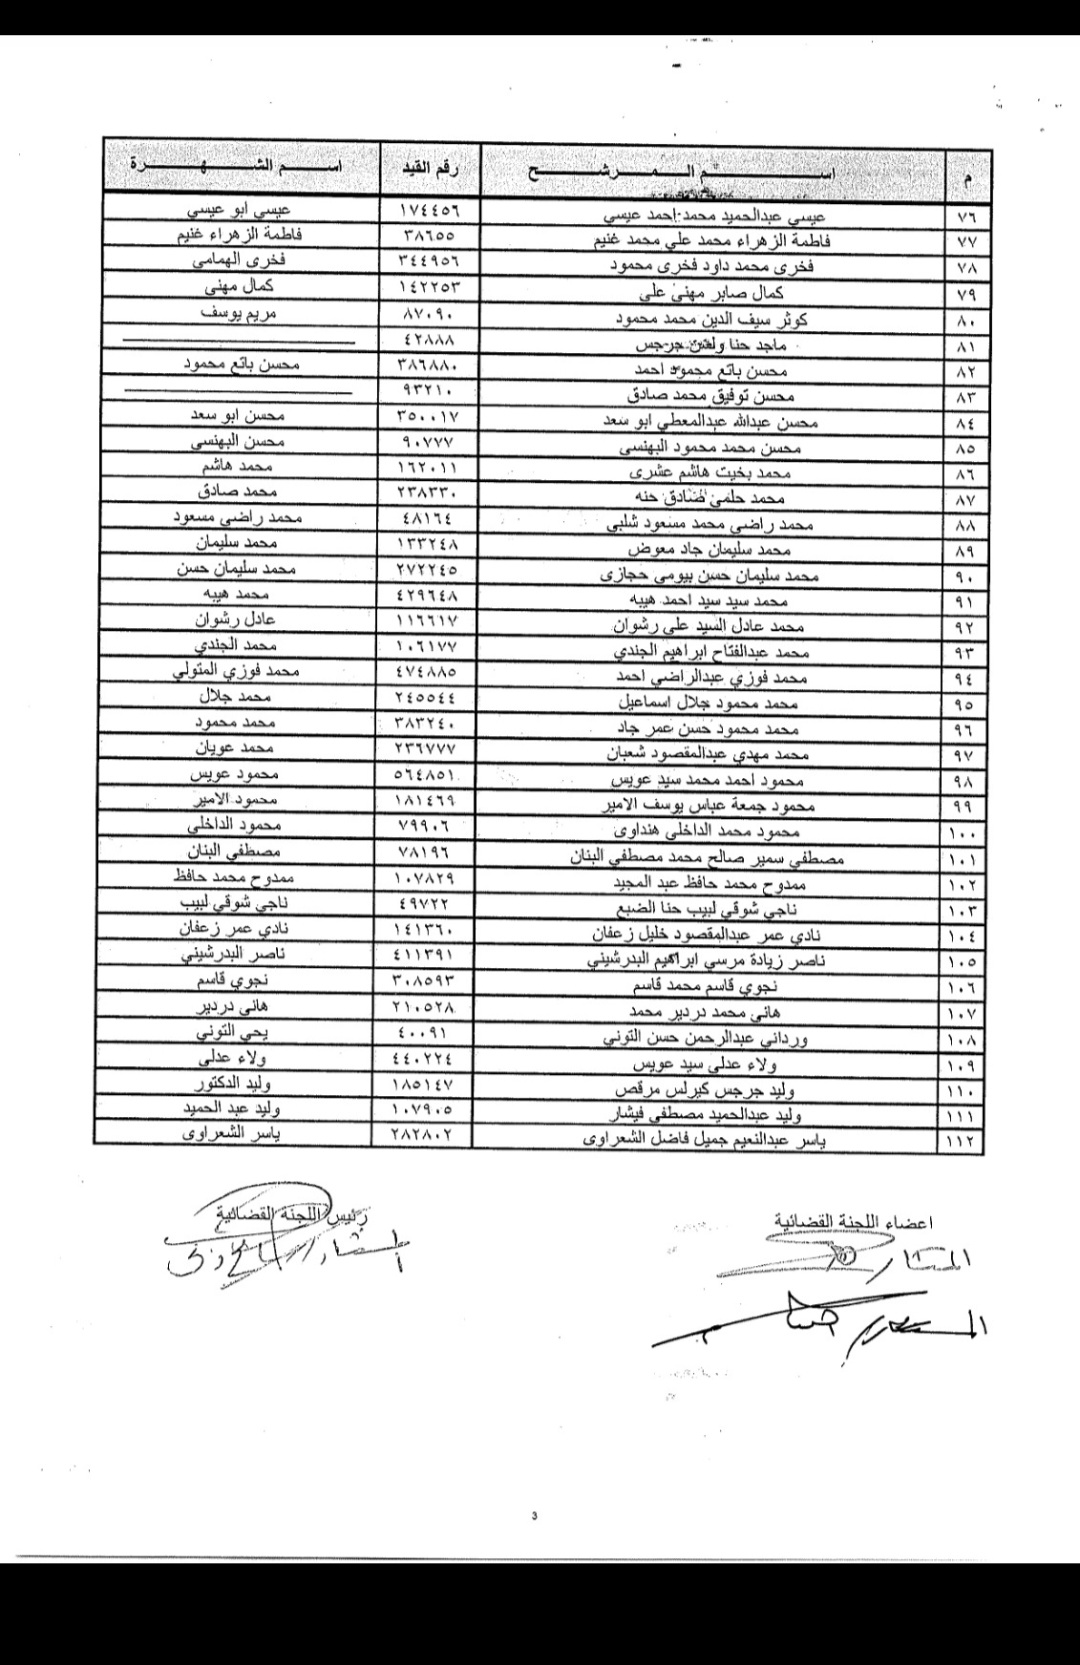 م اســم الـمـرشـح رقم القيد اسـم الشـهـرة
٧٦ عيسي عبدالحميد محمد احمد عيسي ١٧٤٤٥٦ عيسي ابو عيسي
٧٧ فاطمة الزهراء محمد علي محمد غنيم ٣٨٦٥٥ فاطمة الزهراء غنيم
٧٨ فخرى محمد داود فخرى محمود ٣٤٤٩٥٦ فخرى الهمامى
٧٩ كمال صابر مهنى على ١٤٢٢٥٣ كمال مهنى
٨٠ كوثر سيف الدين محمد محمود ٨٧٠٩٠ مريم يوسف
٨١ ماجد حنا جرجس ٤٢٨٨٨
٨٢ محسن باتع محمود احمد ٣٨٦٨٨٠ محسن باتع محمود
٨٣ محسن توفيق محمد صادق ٩٣٢١٠
٨٤ محسن عبدالله عبدالمعطي ابو سعد ٣٥٠٠١٧ محسن ابو سعد
٨٥ محسن محمد محمود البهنسى ٩٠٧٧٧ محسن البهنسى
٨٦ محمد بخيت هاشم عشرى ١٦٢٠١١ محمد هاشم
٨٧ محمد حلمى صادق حنه ٢٣٨٣٣٠ محمد صادق
٨٨ محمد راضى محمد مسعود شلبى ٤٨١٦٤ محمد راضى مسعود
٨٩ محمد سليمان جاد معوض ١٣٣٢٤٨ محمد سليمان
٩٠ محمد سليمان حسن بيومى حجازى ٢٧٢٢٤٥ محمد سليمان حسن
٩١ محمد سيد سيد احمد هيبه ٤٢٩٦٤٨ محمد هيبه
٩٢ محمد عادل السيد على رشوان ١١٦٦١٧ عادل رشوان
٩٣ محمد عبدالفتاح ابراهيم الجندي ١٠٦١٧٧ محمد الجندي
٩٤ محمد فوزي عبدالراضي احمد ٤٧٤٨٨٥ محمد فوزي المتولي
٩٥ محمد محمود جلال اسماعيل ٢٤٥٥٤٤ محمد جلال
٩٦ محمد محمود حسن عمر جاد ٣٨٣٢٤٠ محمد محمود
٩٧ محمد مهدي عبدالمقصود شعبان ٢٣٦٧٧٧ محمد عويان
٩٨ محمود احمد محمد سيد عويس ٥٦٤٨٥١ محمود عويس
٩٩ محمود جمعة عباس يوسف الامير ١٨١٤٦٩ محمود الامير
١٠٠ محمود محمد الداخلى هنداوى ٧٩٩٠٦ محمود الداخلى
١٠١ مصطفي سمير صالح محمد مصطفي البنان ٧٨١٩٦ مصطفي البنان
١٠٢ ممدوح محمد حافظ عبد المجيد ١٠٧٨٢٩ ممدوح محمد حافظ
١٠٣ ناجي شوقي لبيب حنا الضبع ٤٩٧٢٢ ناجي شوقي لبيب
١٠٤ نادي عمر عبدالمقصود خليل زعفان ١٤١٣٦٠ نادي عمر زعفان
١٠٥ ناصر زيادة مرسي ابراهيم البدرشيني ٤١١٣٩١ ناصر البدرشيني
١٠٦ نجوي قاسم محمد قاسم ٣٠٨٥٩٣ نجوي قاسم
١٠٧ هانى محمد دردير محمد ٢١٠٥٢٨ هانى دردير
١٠٨ ورداني عبدالرحمن حسن التوني ٤٠٠٩١ يحي التوني
١٠٩ ولاء عدلى سيد عويس ٤٤٠٢٢٤ ولاء عدلى
١١٠ وليد جرجس كيرلس مرقص ١٨٥١٤٧ وليد الدكتور
١١١ وليد عبدالحميد مصطفى فيشار ١٠٧٩٠٥ وليد عبد الحميد
١١٢ ياسر عبدالنعيم جميل فاضل الشعراوى ٢٨٢٨٠٢ ياسر الشعراوى
اعضاء اللجنة القضائية رئيس اللجنة القضائية
المستشار
3